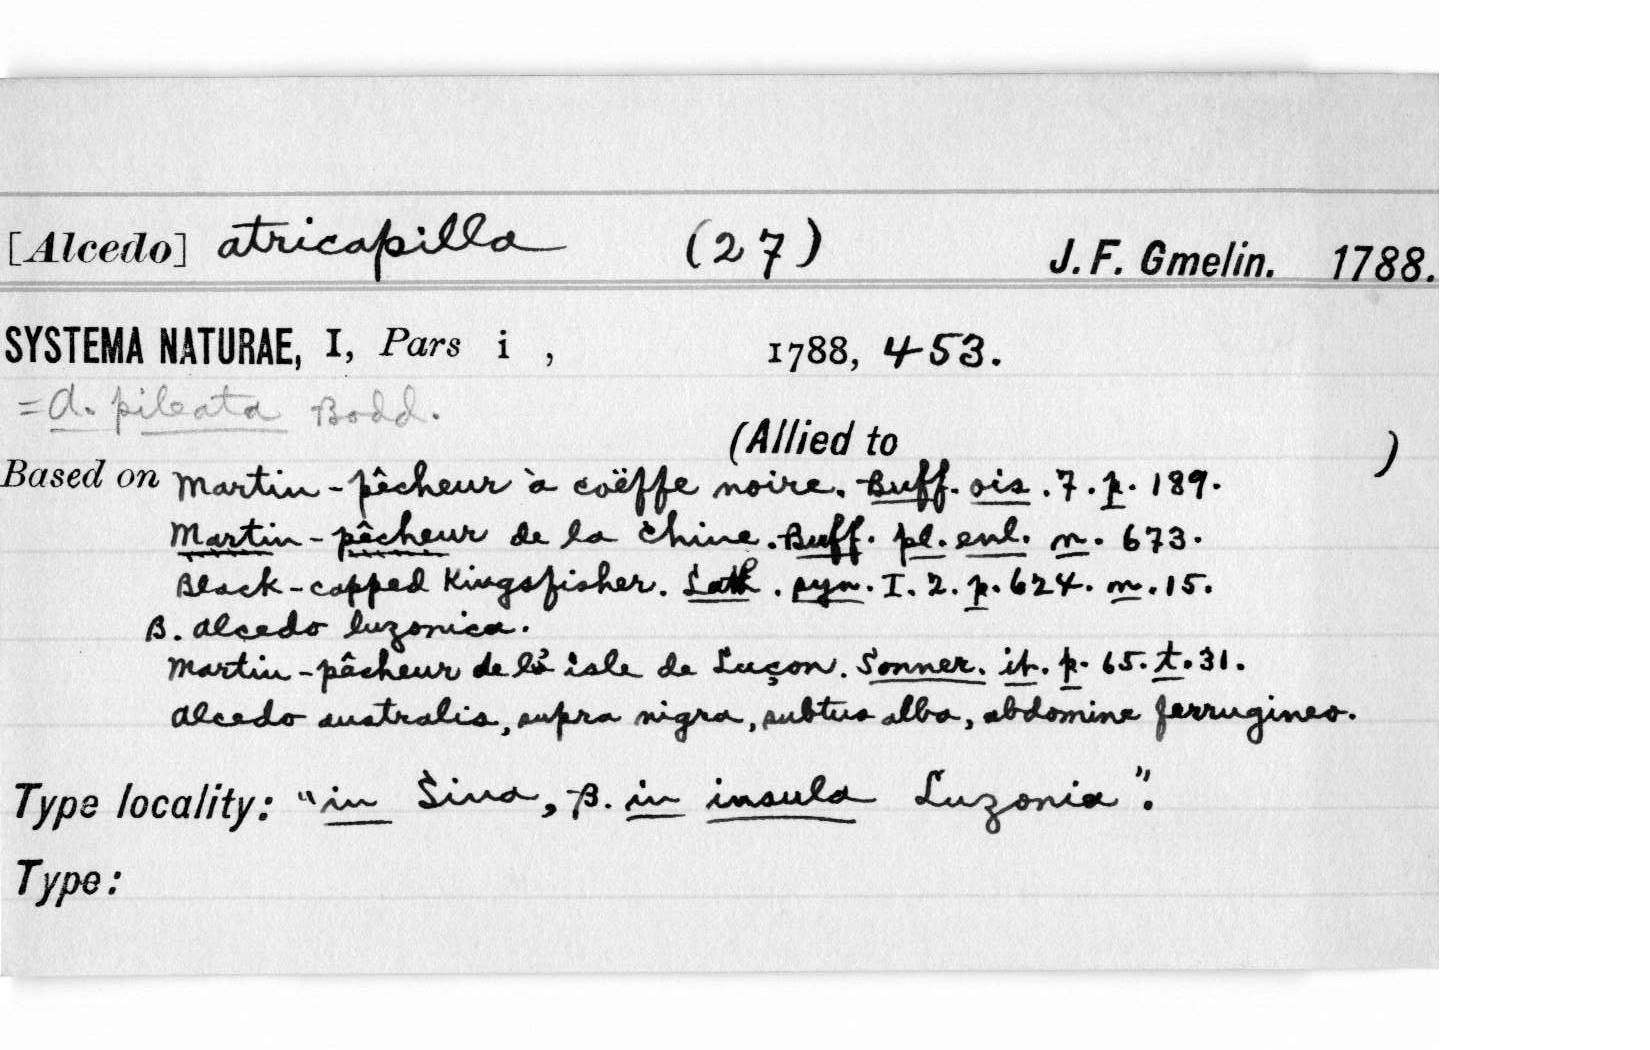 [Alcedo] atricapilla (27) J. F. Gmelin. 1788.
SYSTEMA NATURAE, I, Pars i , 1788, 453.
=A. pileata Bodd.
(Allied to )
Based on Martin-pêcheur à coëffe noire. Buff. ois. 7. p. 189.
Martin-pêcheur de la Chine. Buff. pl. enl. n. 673.
Black-capped Kingsfisher. Lath. syn. I. 2. p. 624. n. 15.
B. Alcedo luzonica.
Martin-pêcheur de l' isle de Luçon. Sonner. it. p. 65. t. 31.
Alcedo australis, supra nigra, subtus alba, abdomine ferrugineo.
Type locality: "in Sina, B. in insula Luzonia".
Type: